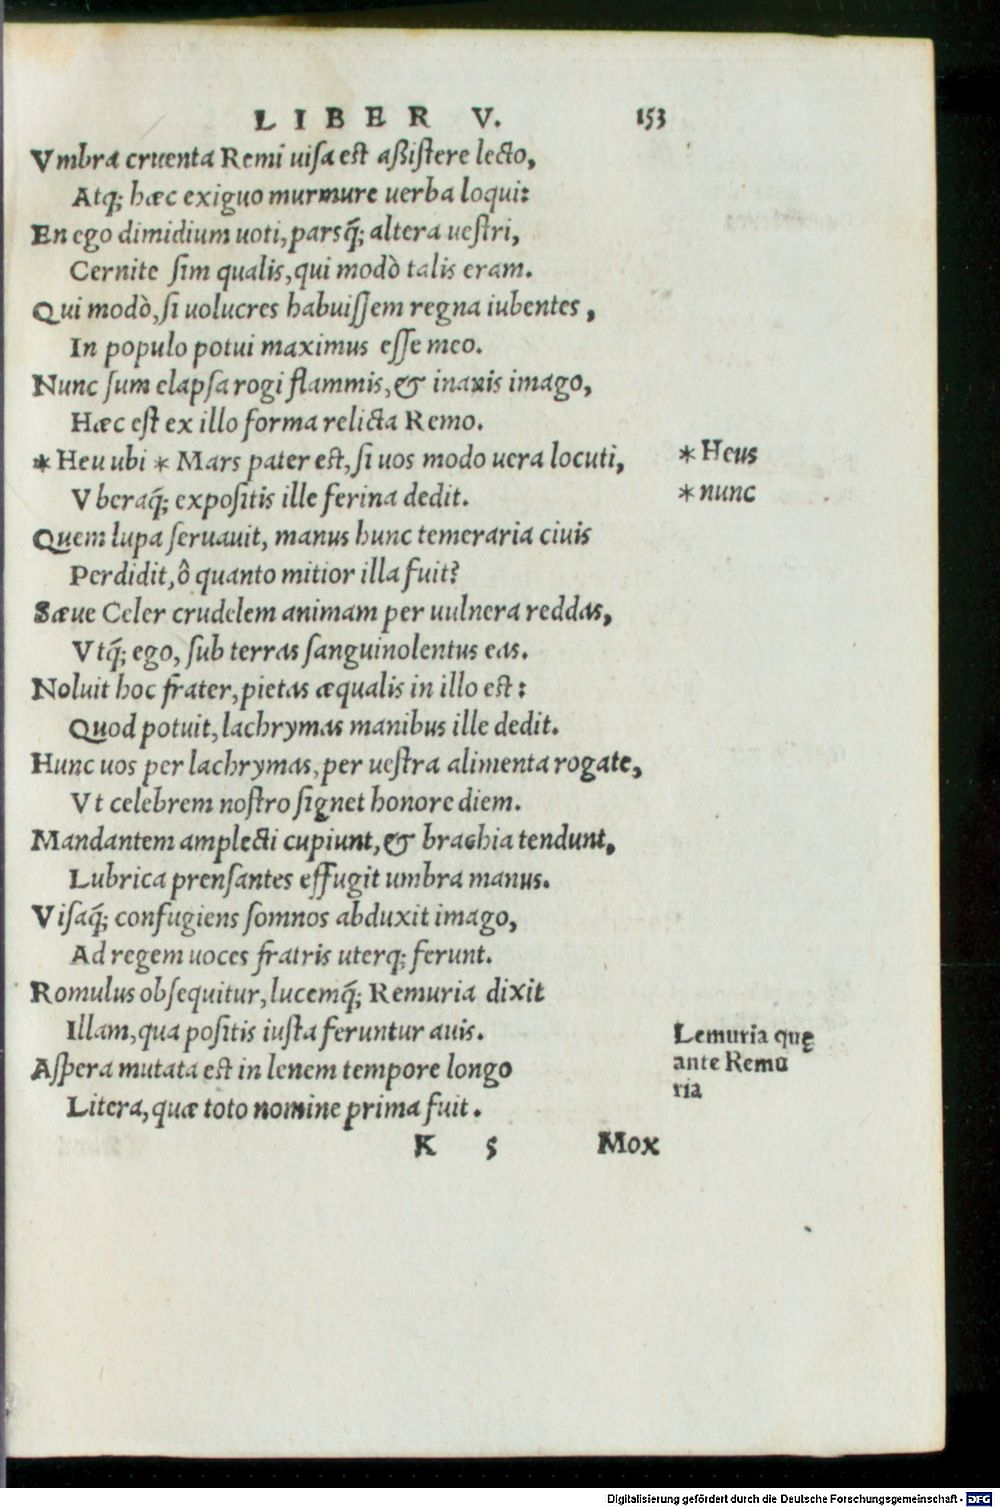 LIBER V. 153
Vmbra cruenta Remi uisa est aßistere lecto,
Atq; hæc exiguo murmure uerba loqui:
En ego dimidium uoti, parsq́; altera uestri,
Cernite sim qualis, qui modò talis eram.
Qui modò, si uolucres habuissem regna iubentes,
In populo potui maximus esse meo.
Nunc sum elapsa rogi flammis, & inanis imago,
Hæc est ex illo forma relicta Remo.
*Heu ubi * Mars pater est, si uos modo uera locuti, *Heus
Vberaq́; expositis ille ferina dedit. *nunc
Quem lupa seruauit, manus hunc temeraria ciuis
Perdidit, ô quanto mitior illa fuit?
Sæue Celer crudelem animam per uulnera reddas,
Vtq́; ego, sub terras sanguinolentus eas.
Noluit hoc frater, pietas æqualis in illo est:
Quod potuit, lachrymas manibus ille dedit.
Hunc uos per lachrymas, per uestra alimenta rogate,
Vt celebrem nostro signet honore diem.
Mandantem amplecti cupiunt, & brachia tendunt,
Lubrica prensantes effugit umbra manus.
Visaq́; confugiens somnos abduxit imago,
Ad regem uoces fratris uterq; ferunt.
Romulus obsequitur, lucemq́; Remuria dixit
Illam, qua positis iusta feruntur auis. Lemuria quę
Aspera mutata est in lenem tempore longo ante Remu
Litera, quæ toto nomine prima fuit. ria
K 5 Mox
Digitalisierung gefördert durch die Deutsche Forschungsgemeinschaft - DFG